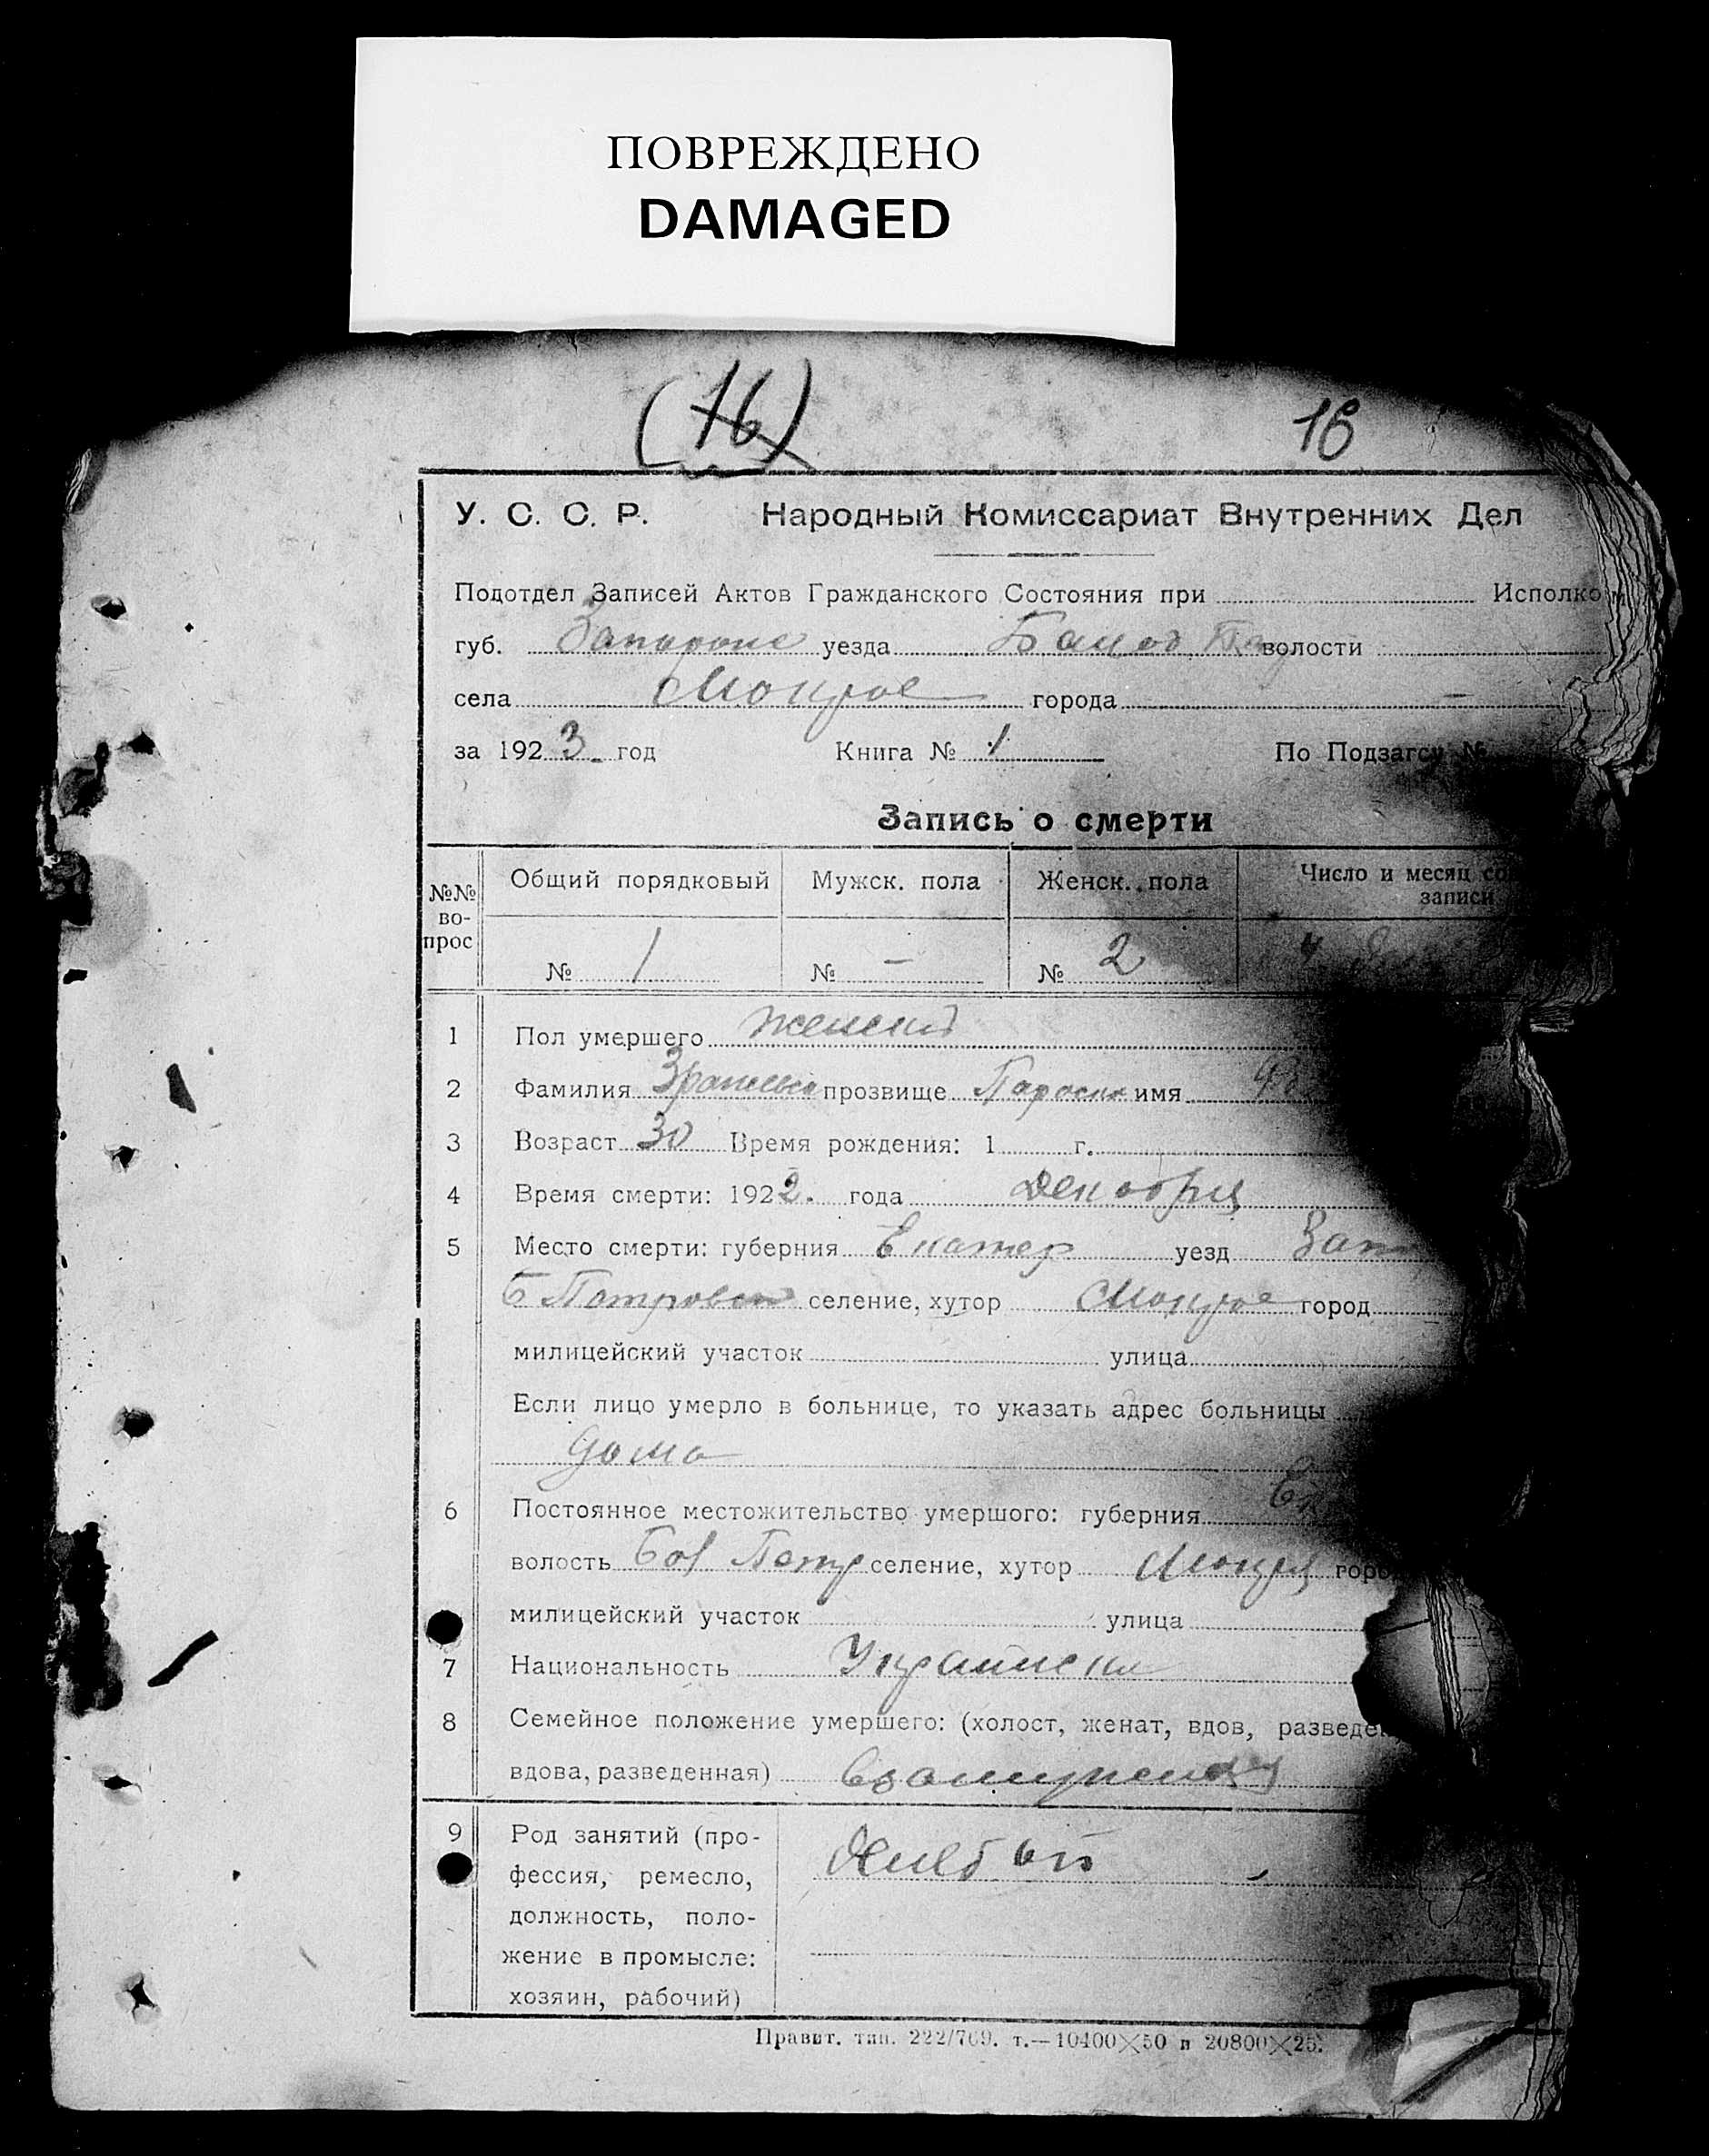 ПОВРЕЖДЕНО
DAMAGED
(16) 18
У. С. С. Р. Народный Комиссариат Внутренних Дел
Подотдел Записей Актов Гражданского Состояния при Исполком
губ. уезда волости
села Мокрое города —
за 1923 год Книга № 1 По Подзагсу №
Запись о смерти
№№ во-прос Общий порядковый Мужск. пола Женск. пола Число и месяц со
записи
№ 1 № — № 2 4
1 Пол умершего женский
2 Фамилия прозвище имя
3 Возраст 30 Время рождения: 1 г.
4 Время смерти: 1922. года Декабря
5 Место смерти: губерния Екатер уезд Зап
Б Петровск селение, хутор Мокрое город
милицейский участок улица
Если лицо умерло в больнице, то указать адрес больницы
дома
6 Постоянное местожительство умершого: губерния Ек
волость Петр селение, хутор горо
милицейский участок улица
7 Национальность Украинска
8 Семейное положение умершего: (холост, женат, вдов, разведен,
вдова, разведенная)
9 Род занятий (про-
фессия, ремесло,
должность, поло-
жение в промысле:
хозяин, рабочий)
Правит. тип. 222/709. т.—10400×50 и 20800×25.